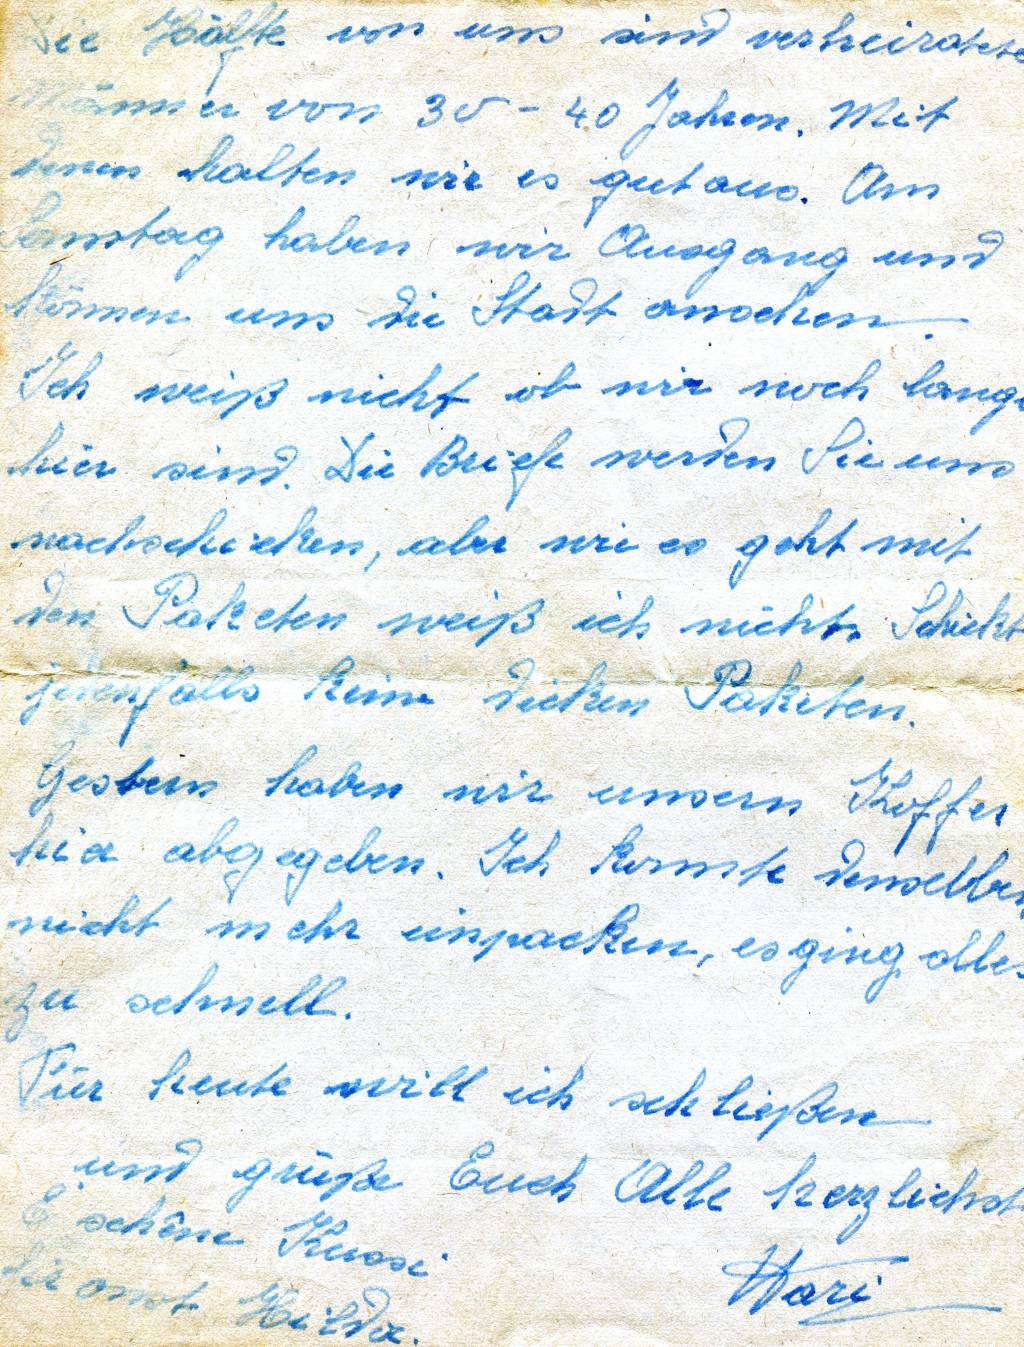 Die Hälfte von uns sind verheiratete
Männer von 30 - 40 Jahren. Mit
denen halten wir es gut aus. Am
Samstag haben wir Ausgang und
können uns die Stadt ansehen.
Ich weiß nicht ob wir noch lange
hier sind. Die Briefe werden Sie uns
nachschicken, aber wie es geht mit
den Paketen weiß ich nicht. Schickt
jedenfalls keine dicken Paketen.
Gestern haben wir unsern Koffer
hier abgegeben. Ich konnte denselben
nicht mehr einpacken, es ging alles
zu schnell.
Für heute will ich schließen
und grüße Euch Alle herzlichst
E schöne Kussi
Hilda.